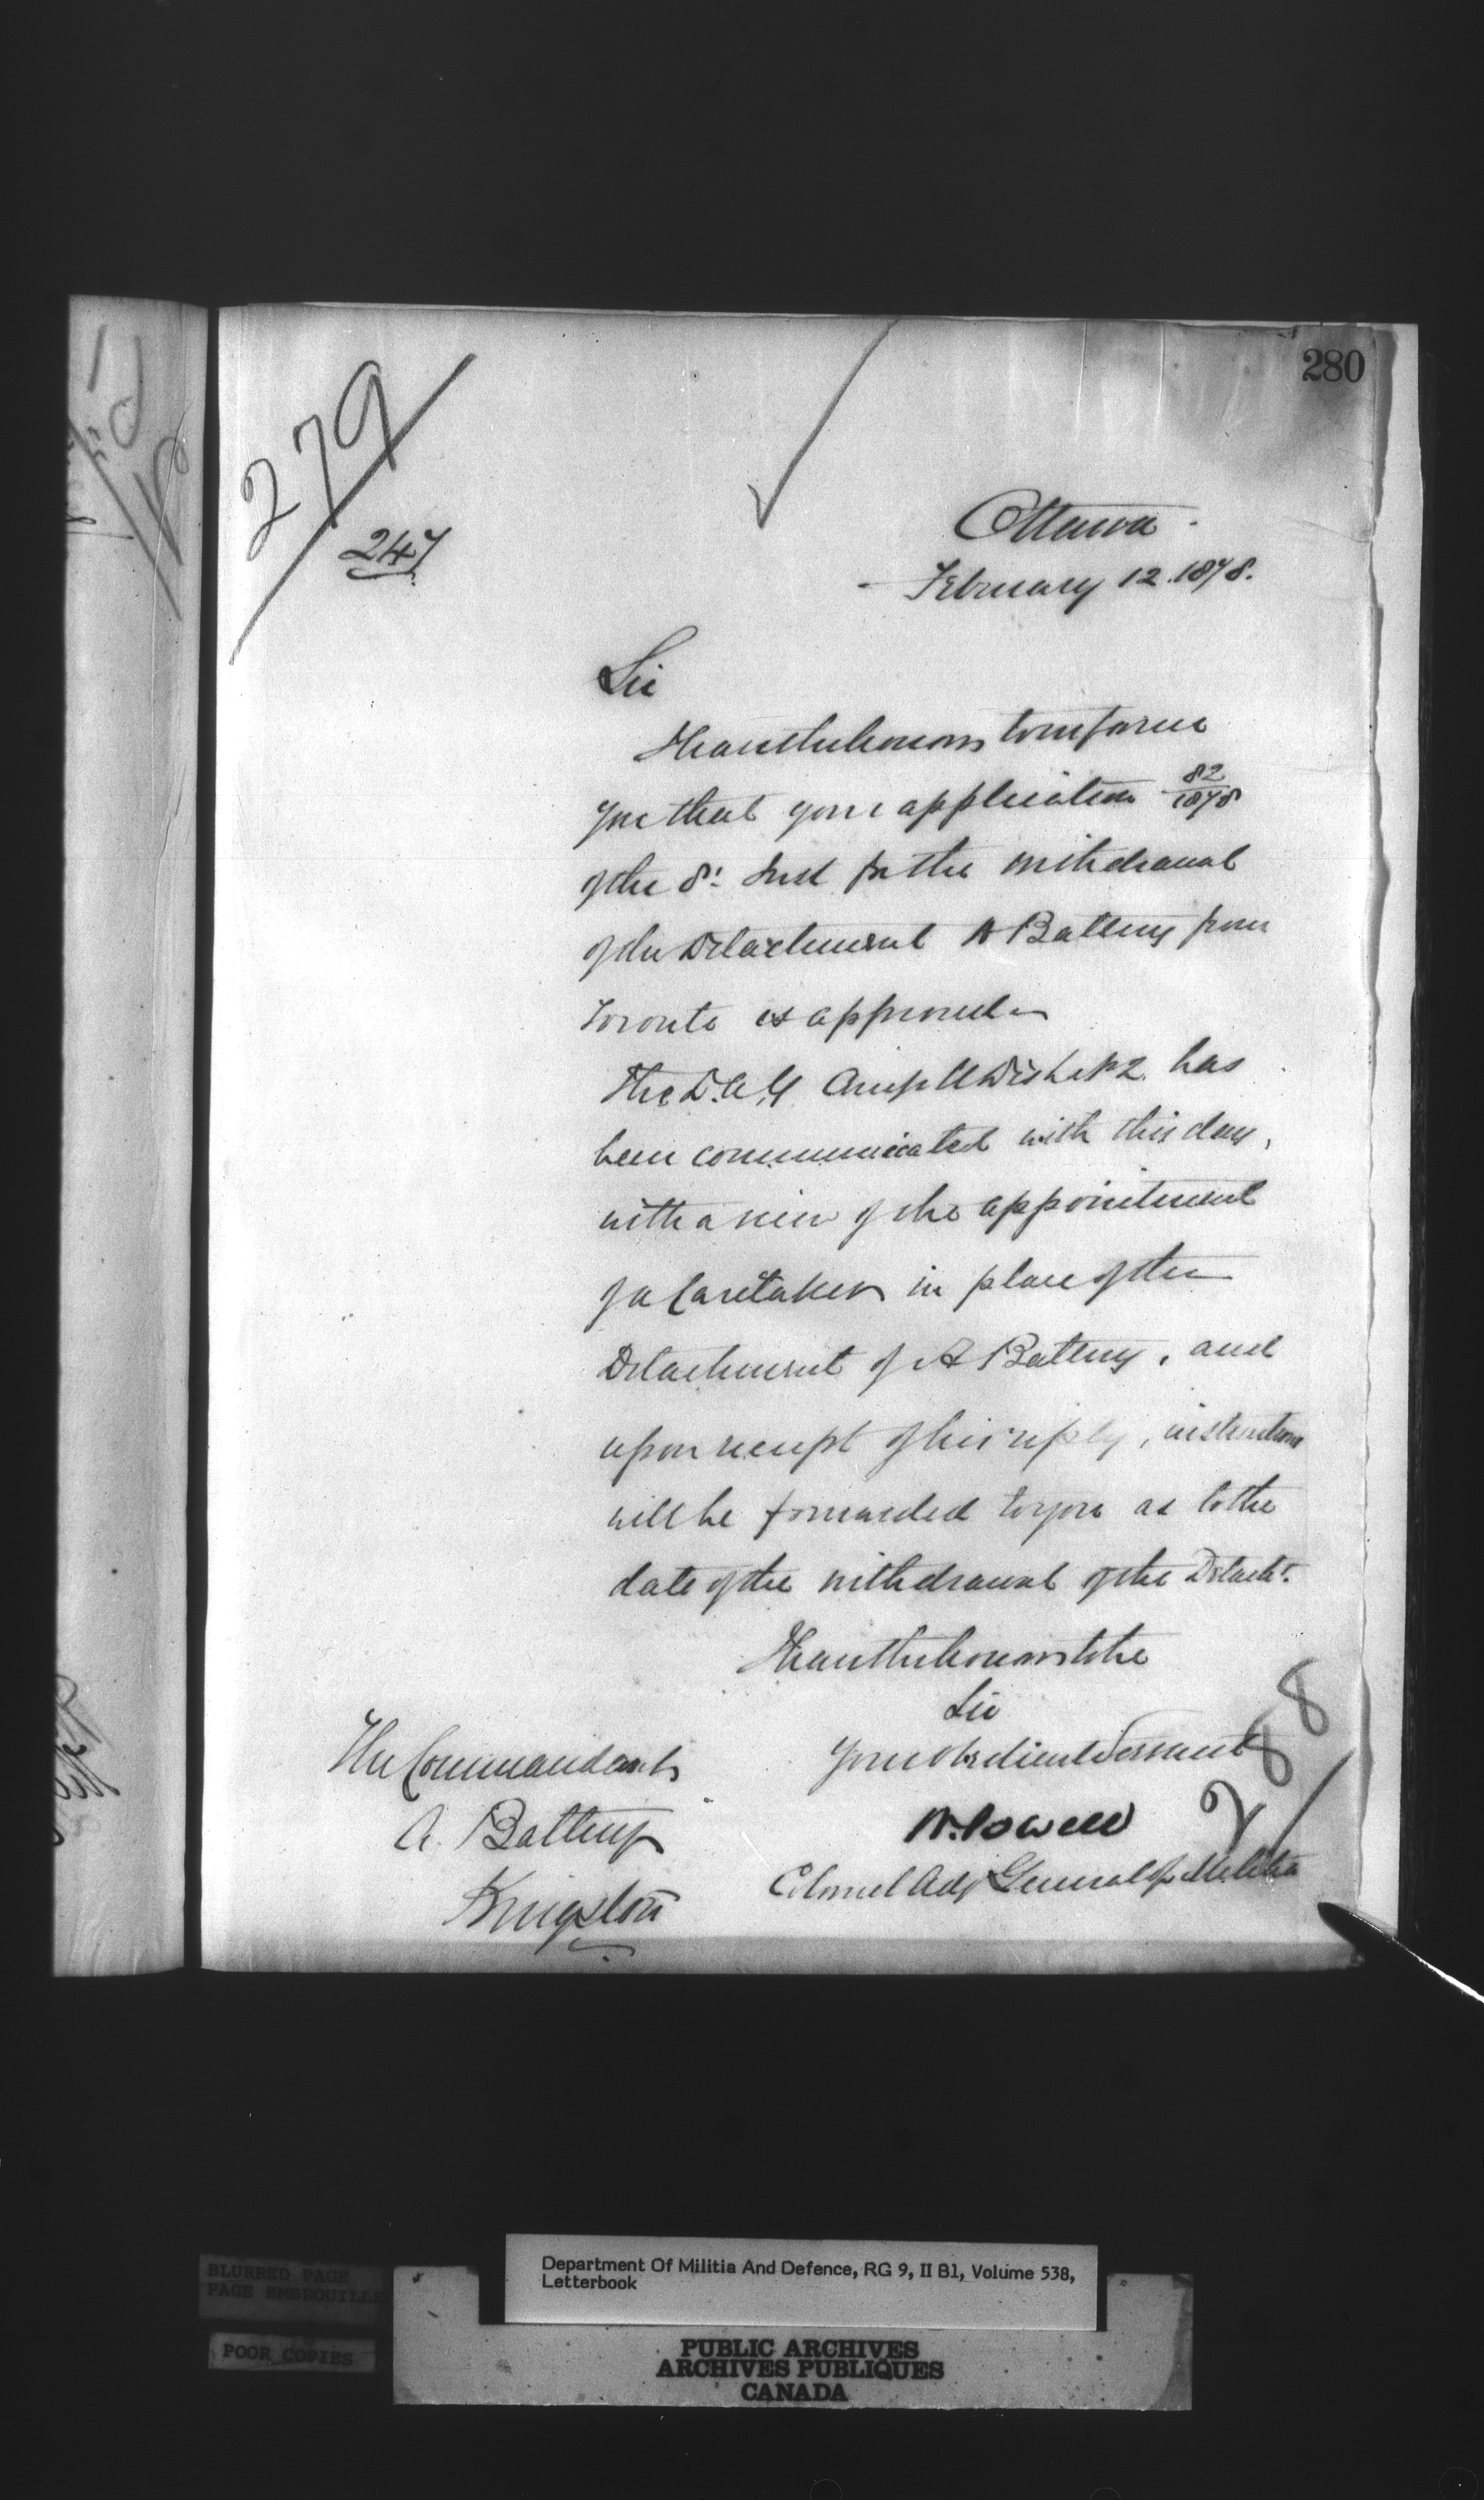 280
279
247
Ottawa
February 12. 1878.
Sir
I have the honour to inform
you that your application 82/1878
of the 8th Inst for the withdrawal
of the Detachment A Battery from
Toronto is approved
The D.A.G. Comg Mil Dist No 2 has
been communicated with this day,
with a view of the appointment
of a Caretaker in place of the
Detachment of A Battery, and
upon receipt of his reply, instructions
will be forwarded to you as to the
date of the withdrawal of the Detacht.
I have the honour to be
Sir
Your obedient Servant
W. Powell
Colonel Adj General of Militia
The Commandant
A. Battery
Kingston
288
Department Of Militia And Defence, RG 9, II B1, Volume 538,
Letterbook
BLURRED PAGE
PAGE EMBROUILLÉE
POOR COPIES
PUBLIC ARCHIVES
ARCHIVES PUBLIQUES
CANADA